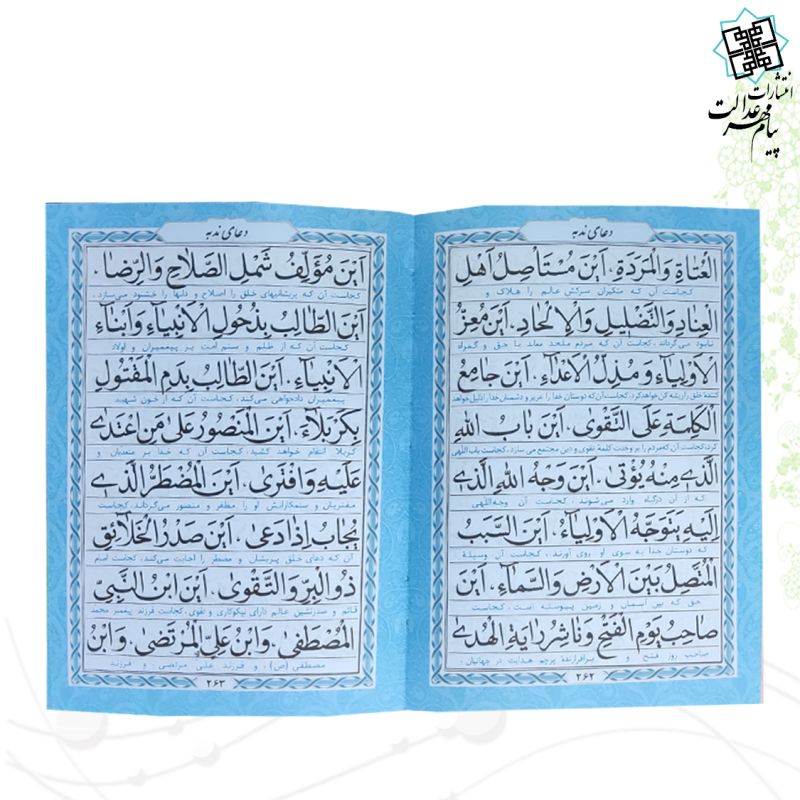 انتشارات
پیام مهر عدالت
دعای ندبه
الْعُتَاةِ وَالْمَرَدَةِ، اَيْنَ مُسْتَاْصِلُ اَهْلِ
کجاست آن که متکبران سرکش عالم را هلاک و
الْعِنَادِ وَالتَّضْلِيلِ وَالْاِلْحَادِ، اَيْنَ مُعِزُّ
نابود می‌گرداند، کجاست آن که مردم ملحد معاند با حق و گمراه
الْاَوْلِيَاءِ وَ مُذِلُّ الْاَعْدَاءِ، اَيْنَ جَامِعُ
کننده خلق را ریشه کن خواهد کرد، کجاست آن که دوستان خدا را عزیز و دشمنان خدا را ذلیل خواهد
الْكَلِمَةِ عَلَى التَّقْوٰى، اَيْنَ بَابُ اللهِ
کرد، کجاست آن که مردم را بر وحدت کلمه تقوی و دین مجتمع می سازد، کجاست باب اللهی
الَّذٖى مِنْهُ يُؤْتٰى، اَيْنَ وَجْهُ اللهِ الَّذٖى
که از آن درگاه وارد می‌شوند، کجاست آن وجه‌اللهی
اِلَيْهِ يَتَوَجَّهُ الْاَوْلِيَاءُ، اَيْنَ السَّبَبُ
که دوستان خدا به سوی او روی آورند، کجاست آن وسیلهٔ
الْمُتَّصِلُ بَيْنَ الْاَرْضِ وَالسَّمَاءِ، اَيْنَ
حق که بین آسمان و زمین پیوسته است، کجاست
صَاحِبُ يَوْمِ الْفَتْحِ وَ نَاشِرُ رَايَةِ الْهُدٰى
صاحب روز فتح و برافرازندهٔ پرچم هدایت در جهانیان،
۲۶۲
دعای ندبه
اَيْنَ مُؤَلِّفُ شَمْلِ الصَّلَاحِ وَالرِّضَا،
کجاست آن که پریشانیهای خلق را اصلاح و دلها را خشنود می‌سازد،
اَيْنَ الطَّالِبُ بِذُحُولِ الْاَنْبِيَاءِ وَ اَبْنَاءِ
کجاست آن که از ظلم و ستم امت بر پیغمبران و اولاد
الْاَنْبِيَاءِ، اَيْنَ الطَّالِبُ بِدَمِ الْمَقْتُولِ
پیغمبران دادخواهی می‌کند، کجاست آن که از خون شهید
بِكَرْبَلَاءَ، اَيْنَ الْمَنْصُورُ عَلٰى مَنِ اعْتَدٰى
کربلا انتقام خواهد کشید، کجاست آن که خدا بر متعدیان و
عَلَيْهِ وَ افْتَرٰى، اَيْنَ الْمُضْطَرُّ الَّذٖى
مفتریان و ستمکارانش او را مظفر و منصور می‌گرداند، کجاست
يُجَابُ اِذَا دَعٰى، اَيْنَ صَدْرُ الْخَلَائِقِ
آن که دعای خلق پریشان و مضطر را اجابت می‌کند، کجاست امام
ذُو الْبِرِّ وَ التَّقْوٰى، اَيْنَ ابْنُ النَّبِىِّ
قائم و صدرنشین عالم دارای نیکوکاری و تقوی، کجاست فرزند پیغمبر محمد
الْمُصْطَفٰى، وَ ابْنُ عَلِىٍّ الْمُرْتَضٰى، وَ ابْنُ
مصطفی (ص)، و فرزند علی مرتضی، و فرزند
۲۶۳